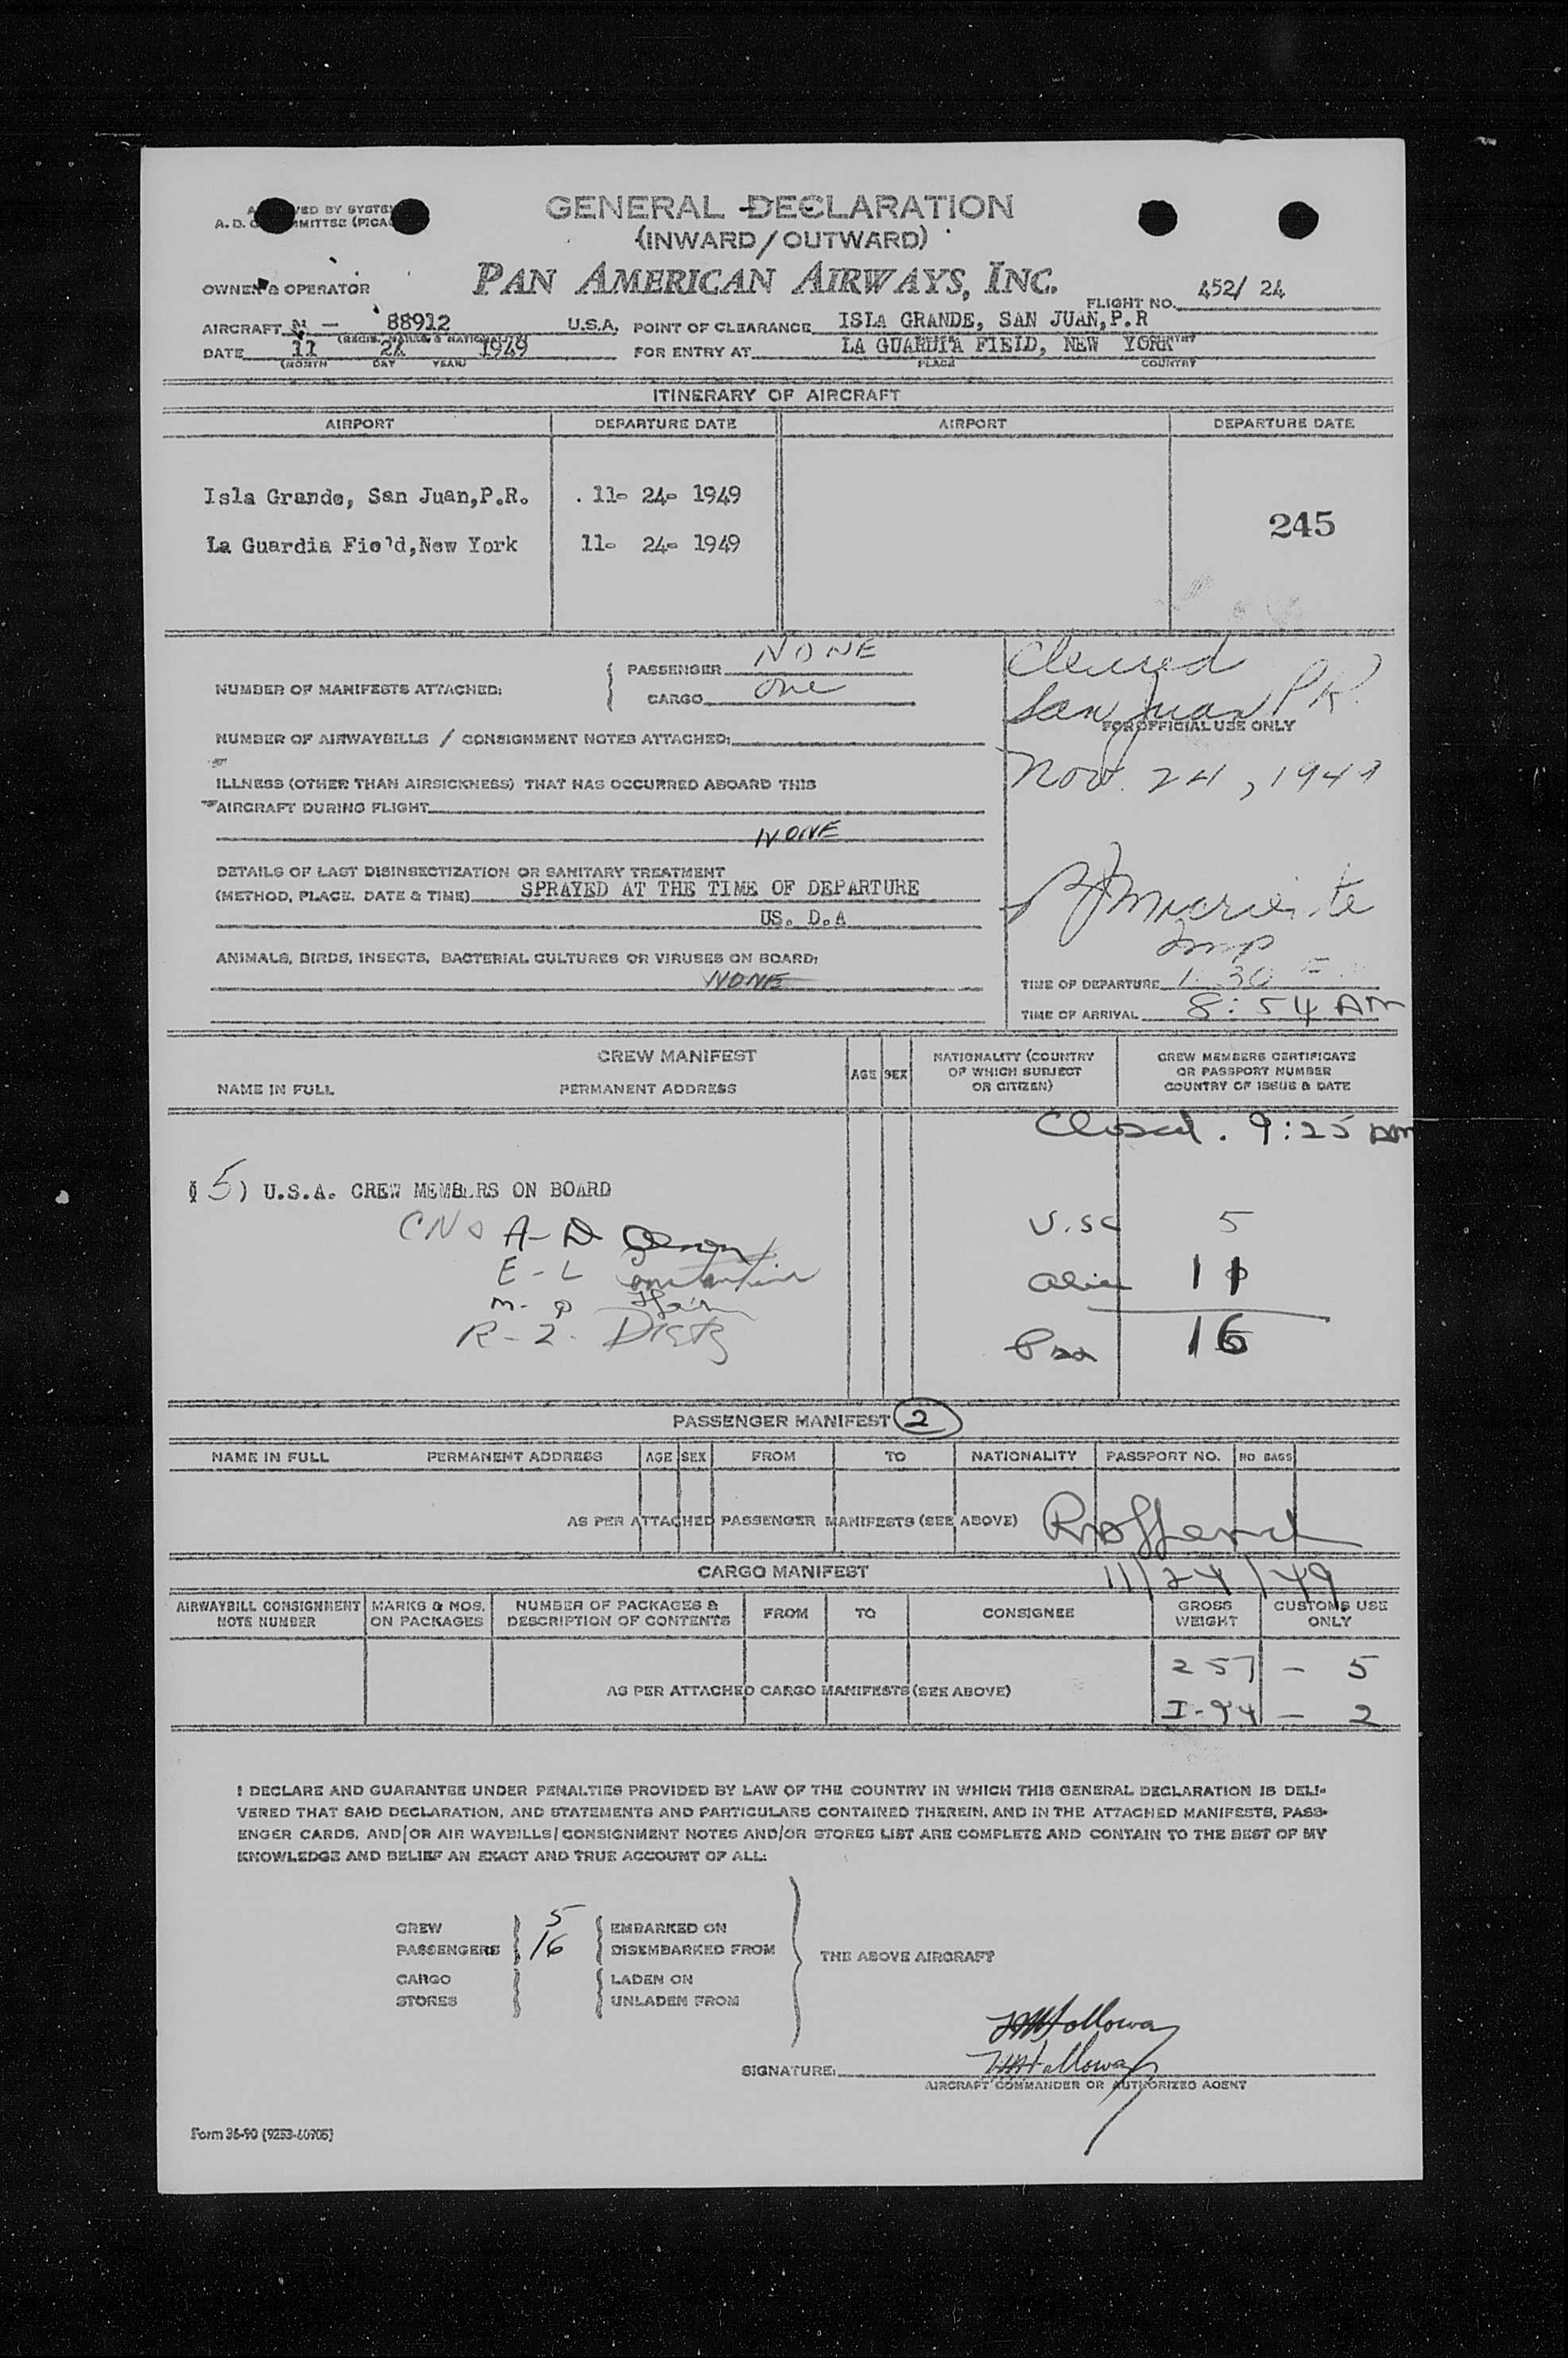 GENERAL DECLARATION
(INWARD/OUTWARD)
PAN AMERICAN AIRWAYS, INC.
OWNER & OPERATOR
FLIGHT NO. 452/ 24
AIRCRAFT N - 88912 U.S.A. POINT OF CLEARANCE ISLA GRANDE, SAN JUAN,P.R
DATE 11 24 1949 FOR ENTRY AT LA GUARDIA FIELD, NEW YORK
(MONTH DAY YEAR) PLACE COUNTRY
ITINERARY OF AIRCRAFT
AIRPORT DEPARTURE DATE AIRPORT DEPARTURE DATE
Isla Grande, San Juan,P.R. 11- 24- 1949
245
La Guardia Field,New York 11- 24- 1949
NUMBER OF MANIFESTS ATTACHED:
PASSENGER NONE
CARGO one
Cleared
San Juan P R
FOR OFFICIAL USE ONLY
Nov. 24, 1949
NUMBER OF AIRWAYBILLS / CONSIGNMENT NOTES ATTACHED:
ILLNESS (OTHER THAN AIRSICKNESS) THAT HAS OCCURRED ABOARD THIS
AIRCRAFT DURING FLIGHT
NONE
DETAILS OF LAST DISINSECTIZATION OR SANITARY TREATMENT
(METHOD, PLACE, DATE & TIME) SPRAYED AT THE TIME OF DEPARTURE
US. D.A
Insp
ANIMALS, BIRDS, INSECTS, BACTERIAL CULTURES OR VIRUSES ON BOARD:
NONE
TIME OF DEPARTURE 1:30
TIME OF ARRIVAL 8:54 AM
CREW MANIFEST
NAME IN FULL PERMANENT ADDRESS AGE SEX
NATIONALITY (COUNTRY
OF WHICH SUBJECT
OR CITIZEN)
CREW MEMBERS CERTIFICATE
OR PASSPORT NUMBER
COUNTRY OF ISSUE & DATE
Closed. 9:25 am
5) U.S.A. CREW MEMBERS ON BOARD
A-D
U.SC 5
E-L
Alien 11
R-Z Dietz
Pax 16
PASSENGER MANIFEST 2
NAME IN FULL PERMANENT ADDRESS AGE SEX FROM TO NATIONALITY PASSPORT NO. NO BAGS
AS PER ATTACHED PASSENGER MANIFESTS (SEE ABOVE)
CARGO MANIFEST
11/24/49
AIRWAYBILL CONSIGNMENT
NOTE NUMBER
MARKS & NOS.
ON PACKAGES
NUMBER OF PACKAGES &
DESCRIPTION OF CONTENTS
FROM TO CONSIGNEE
GROSS
WEIGHT
CUSTOMS USE
ONLY
257 - 5
AS PER ATTACHED CARGO MANIFESTS (SEE ABOVE)
I-94 - 2
I DECLARE AND GUARANTEE UNDER PENALTIES PROVIDED BY LAW OF THE COUNTRY IN WHICH THIS GENERAL DECLARATION IS DELI-
VERED THAT SAID DECLARATION, AND STATEMENTS AND PARTICULARS CONTAINED THEREIN, AND IN THE ATTACHED MANIFESTS, PASS-
ENGER CARDS, AND/OR AIR WAYBILLS/CONSIGNMENT NOTES AND/OR STORES LIST ARE COMPLETE AND CONTAIN TO THE BEST OF MY
KNOWLEDGE AND BELIEF AN EXACT AND TRUE ACCOUNT OF ALL:
CREW 5 EMBARKED ON
PASSENGERS 16 DISEMBARKED FROM
THE ABOVE AIRCRAFT
CARGO LADEN ON
STORES UNLADEN FROM
Holloway
SIGNATURE: Holloway
AIRCRAFT COMMANDER OR AUTHORIZED AGENT
Form 36-90 (9253-60905)